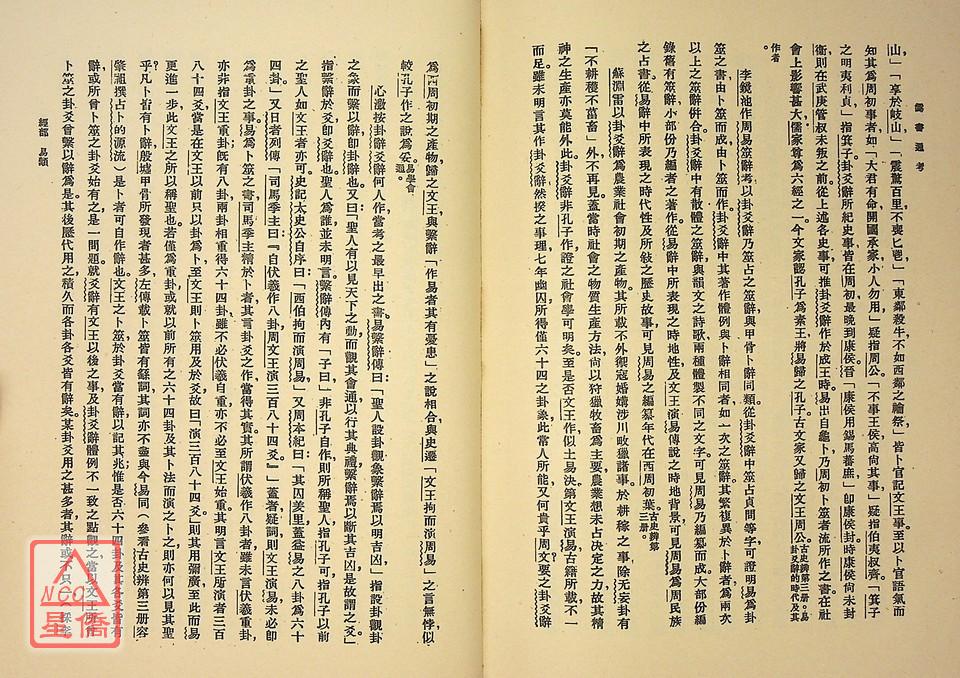 僞書通考
山」「享於岐山」「震驚百里不喪匕鬯」「東鄰殺牛不如西鄰之禴祭」皆卜官記文王事至以卜官語氣而
知其爲周初事者如「大君有命開國承家小人勿用」疑指周公「不事王侯高尚其事」疑指伯夷叔齊「箕子
之明夷利貞」指箕子卦爻辭所紀史事皆在周初最晚到康侯晉「康侯用錫馬蕃庶」即康侯封時康侯尚未封
衞則在武庚管叔未叛之前從上述各史事可推卦爻辭作於成王時易出自龜卜乃周初卜筮者流所作之書在社
會上影響甚大儒家尊爲六經之一今文家認孔子爲素王將易歸之孔子古文家又歸之文王周公古史辨第三册易卦爻辭的時代及其
作者
李鏡池作周易筮辭考以卦爻辭乃筮占之筮辭與甲骨卜辭同類從卦爻辭中筮占貞問等字可證明易爲卦
筮之書由卜筮而成由卜筮而作卦爻辭中其著作體例與卜辭相同者如一次之筮辭其繁複異於卜辭者爲兩次
以上之筮辭倂合卦爻辭中有散體之筮辭與韻文之詩歌兩種體製不同之文字可見周易乃編纂而成大部份編
錄舊有筮辭小部份乃編者之著作從易辭中所表現之時地性及文王演易傳說之時地背景可見周易爲周民族
之占書從易辭中所表現之時代性及所敍之歷史故事可見周易之編纂年代在西周初葉古史辨第三册
蘇淵雷以卦爻辭爲農業社會初期之產物其所載不外禦寇婚媾涉川畋獵諸事於耕稼之事除无妄卦有
「不耕穫不菑畬」外不再見蓋當時社會之物質生產方法尚以狩獵牧畜爲主要農業想未占決定之力故其精
神之生產亦莫能外此卦爻辭非孔子作證之社會學可明矣至是否文王作似土易決第文王演易古籍所載不一
而足雖未明言其作卦爻辭然揆之事理七年幽囚所得僅六十四之卦彖此當人所能又何貴乎周文要之卦爻辭
爲西周初期之產物歸之文王與繫辭「作易者其有憂患」之說相合與史遷「文王拘而演周易」之言無悖似
較孔子作之說爲妥易學會通
心澂按卦辭爻辭何人作當考之最早出之書易繫辭傳曰「聖人設卦觀象繫辭焉以明吉凶」指設卦觀卦
之象而繫以辭卽卦辭也又曰「聖人有以見天下之動而觀其會通以行其典禮繫辭焉以斷其吉凶是故謂之爻」
指繫辭於爻卽爻辭也聖人爲誰並未明言繫辭傳內有「子曰」非孔子自作則所稱聖人指孔子可指孔子以前
之聖人如文王者亦可史記太史公自序曰「西伯拘而演周易」又周本紀曰「其囚羑里蓋益易之八卦爲六十
四卦」又日者列傳「司馬季主曰『自伏羲作八卦周文王演三百八十四爻』」蓋者疑詞則文王演易未必卽
爲重卦之事易爲卜筮之書司馬季主精於卜者其言卦爻之作當得其實其所謂伏羲作八卦者雖未言伏羲重卦
亦非指文王重卦旣有八卦兩卦相重得六十四卦雖不必伏羲自重亦不必至文王始重其明言文王演者三百
八十四爻當是在文王以前只以卦爲卜至文王則卜筮用及於爻故曰「演三百八十四爻」則其用彌廣至此而易
更進一步此文王之所以稱聖也若僅爲重卦或就以前所有之六十四卦及其卜法而演之卜之則亦何以見其聖
乎凡卜皆有卜辭殷墟甲骨所發現者甚多左傳載卜筮皆有繇詞其詞亦不盡與今易同（參看古史辨第三册容
肇祖撰占卜的源流）是卜者可自作辭也文王之卜筮於卦爻當有辭以記其兆惟是否六十四卦及其各爻皆有
辭或所曾卜筮之卦爻始有之是一問題就爻辭有文王以後之事及卦爻辭體例不一致之點觀之當以文王所作
卜筮之卦爻曾繫以辭爲是其後歷代用之積久而各卦各爻皆有辭矣某卦爻用之甚多者其辭或不只一（採李
經部 易類
NCC
星僑